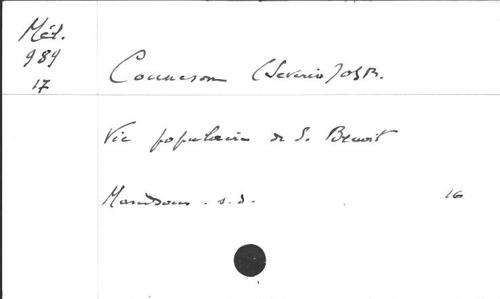 Méd.
984
17
Conneson (Séverin) OSB.
Vie populaire de S. Benoit
s.d. 16